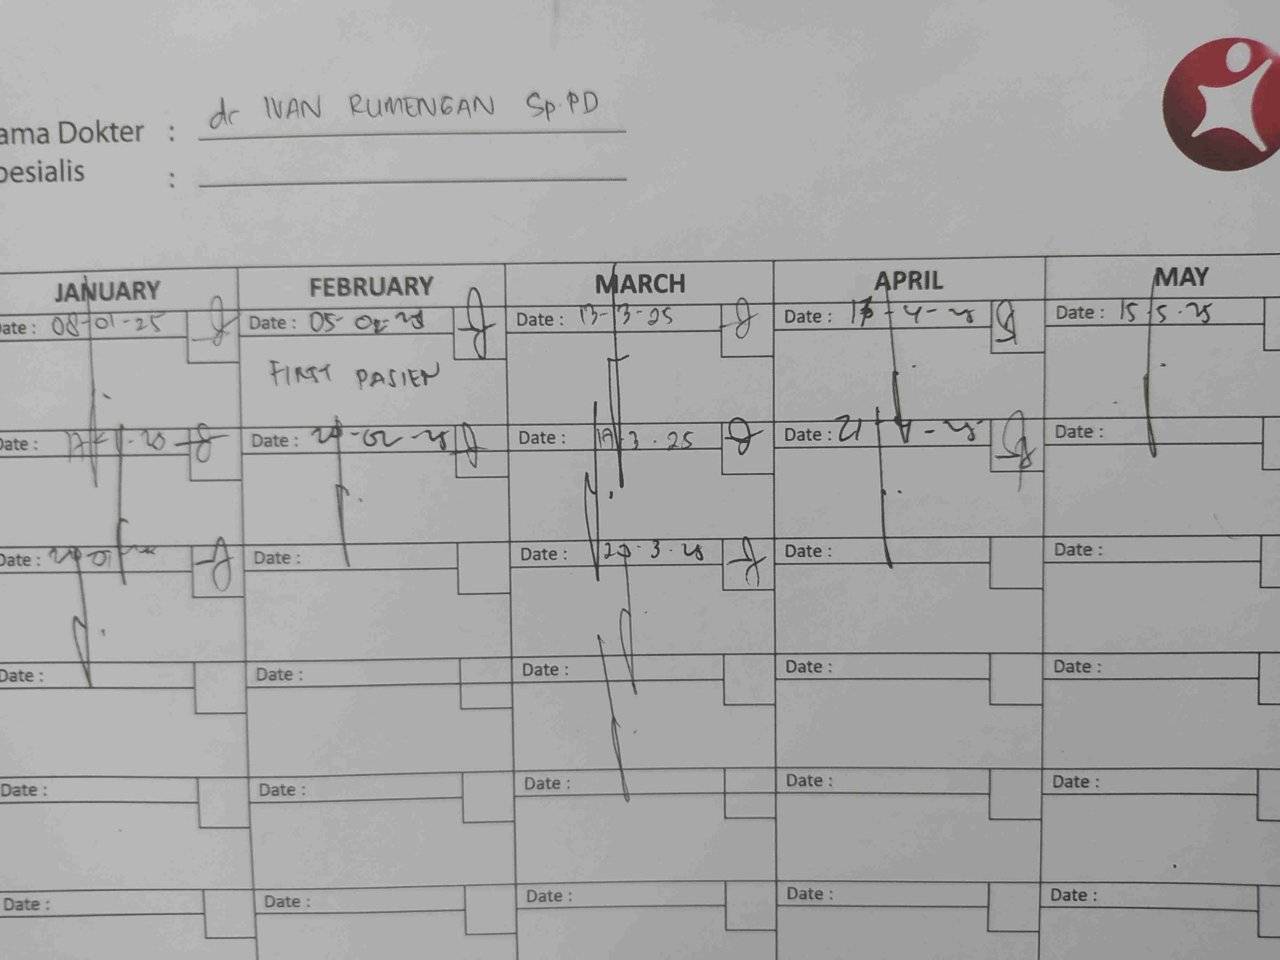 ama Dokter : dr IVAN RUMENGAN Sp.PD
pesialis :
JANUARY FEBRUARY MARCH APRIL MAY
ate : 08-01-25 Date : 05-02-25 Date : 13-3-25 Date : -4-25 Date : 15-5-25
FIRST PASIEN
Date : Date : -02-25 Date : 19-3-25 Date : 21-4-25 Date :
Date : Date : Date : -3-25 Date : Date :
Date : Date : Date : Date : Date :
Date : Date : Date : Date : Date :
Date : Date : Date : Date : Date :